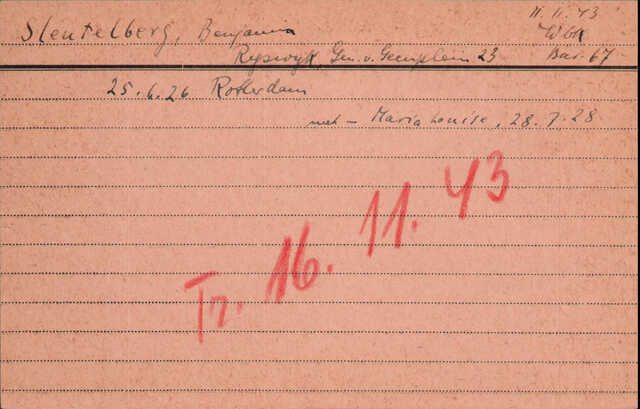 11.11.43
Sleutelberg, Benjamin Wbk
Ryswyk, Gen. v. Geenplein 23 Bar. 67
25.6.26 Rotterdam
Maria Louise, 28.7.28
Tr. 16. 11. 43